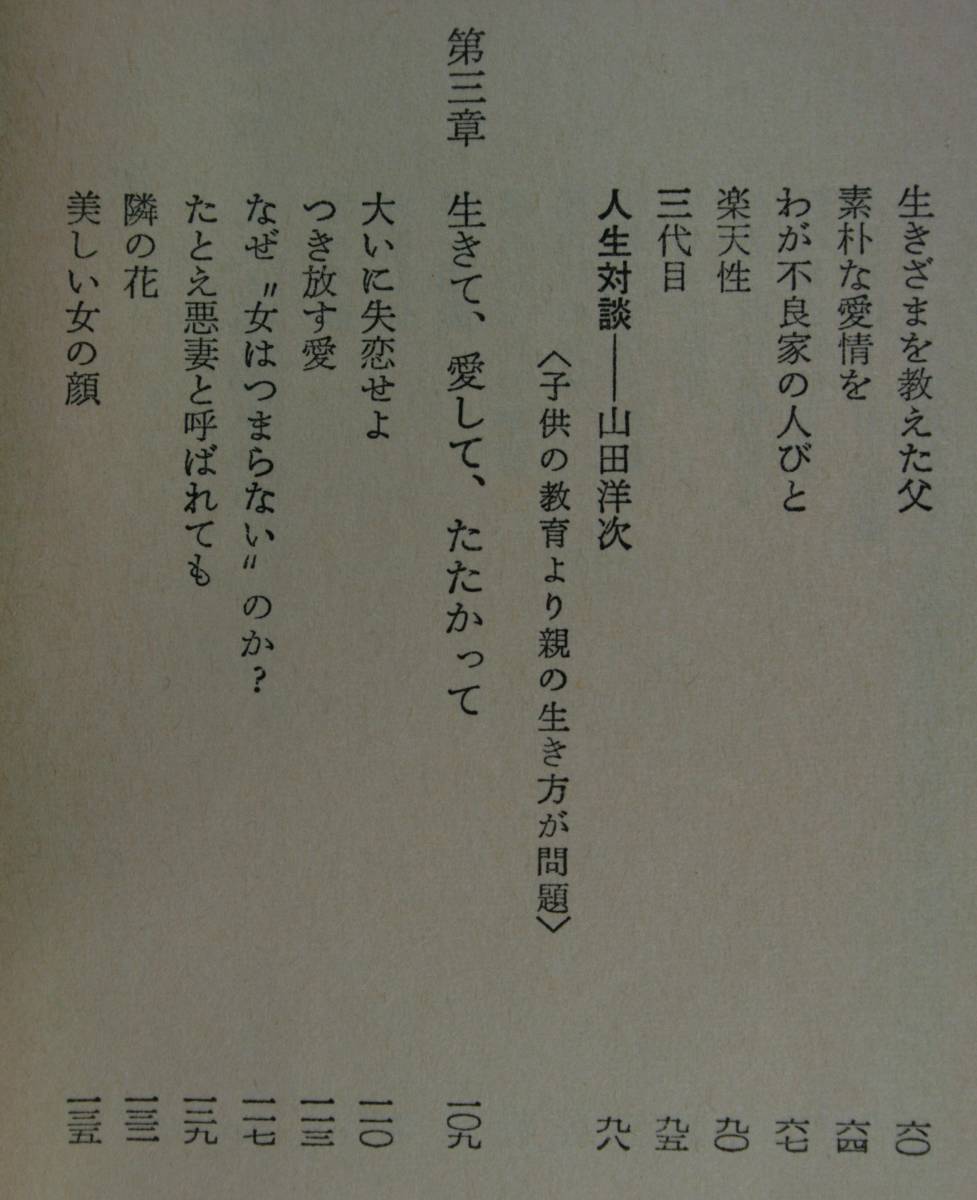 生きざまを教えた父 六〇
素朴な愛情を 六四
わが不良家の人びと 六七
楽天性 九〇
三代目 九五
人生対談――山田洋次 九八
〈子供の教育より親の生き方が問題〉
第三章 生きて、愛して、たたかって 一〇九
大いに失恋せよ 一一〇
つき放す愛 一一三
なぜ〝女はつまらない〟のか? 一一七
たとえ悪妻と呼ばれても 一二九
隣の花 一三二
美しい女の顔 一三五